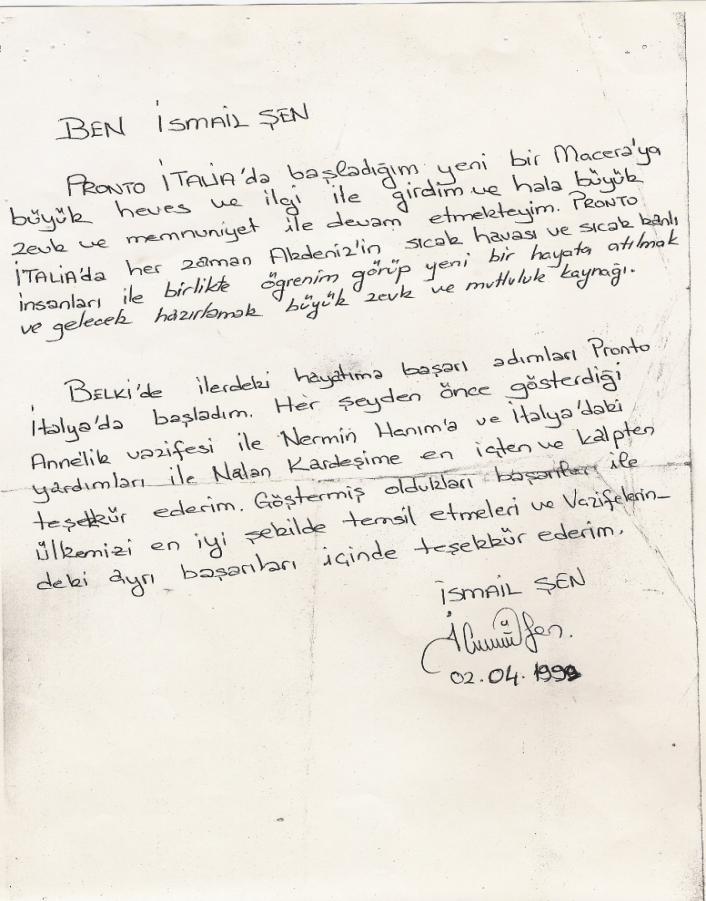 BEN İSMAİL ŞEN
PRONTO İTALİA'da başladığım yeni bir Macera'ya
büyük heves ve ilgi ile girdim ve hala büyük
zevk ve memnuniyet ile devam etmekteyim. PRONTO
İTALİA'da her zaman Akdeniz'in sıcak havası ve sıcak kanlı
insanları ile birlikte öğrenim görüp yeni bir hayata atılmak
ve gelecek hazırlamak büyük zevk ve mutluluk kaynağı.
BELKİ'de ilerdeki hayatıma başarı adımları Pronto
İtalya'da başladım. Her şeyden önce gösterdiği
Annelik vazifesi ile Nermin Hanım'a ve İtalya'daki
yardımları ile Nalan Kardeşime en içten ve kalpten
teşekkür ederim. Göstermiş oldukları başarıları ile
ülkemizi en iyi şekilde temsil etmeleri ve Vazifelerin-
deki ayrı başarıları içinde teşekkür ederim.
İSMAİL ŞEN
02.04.1999